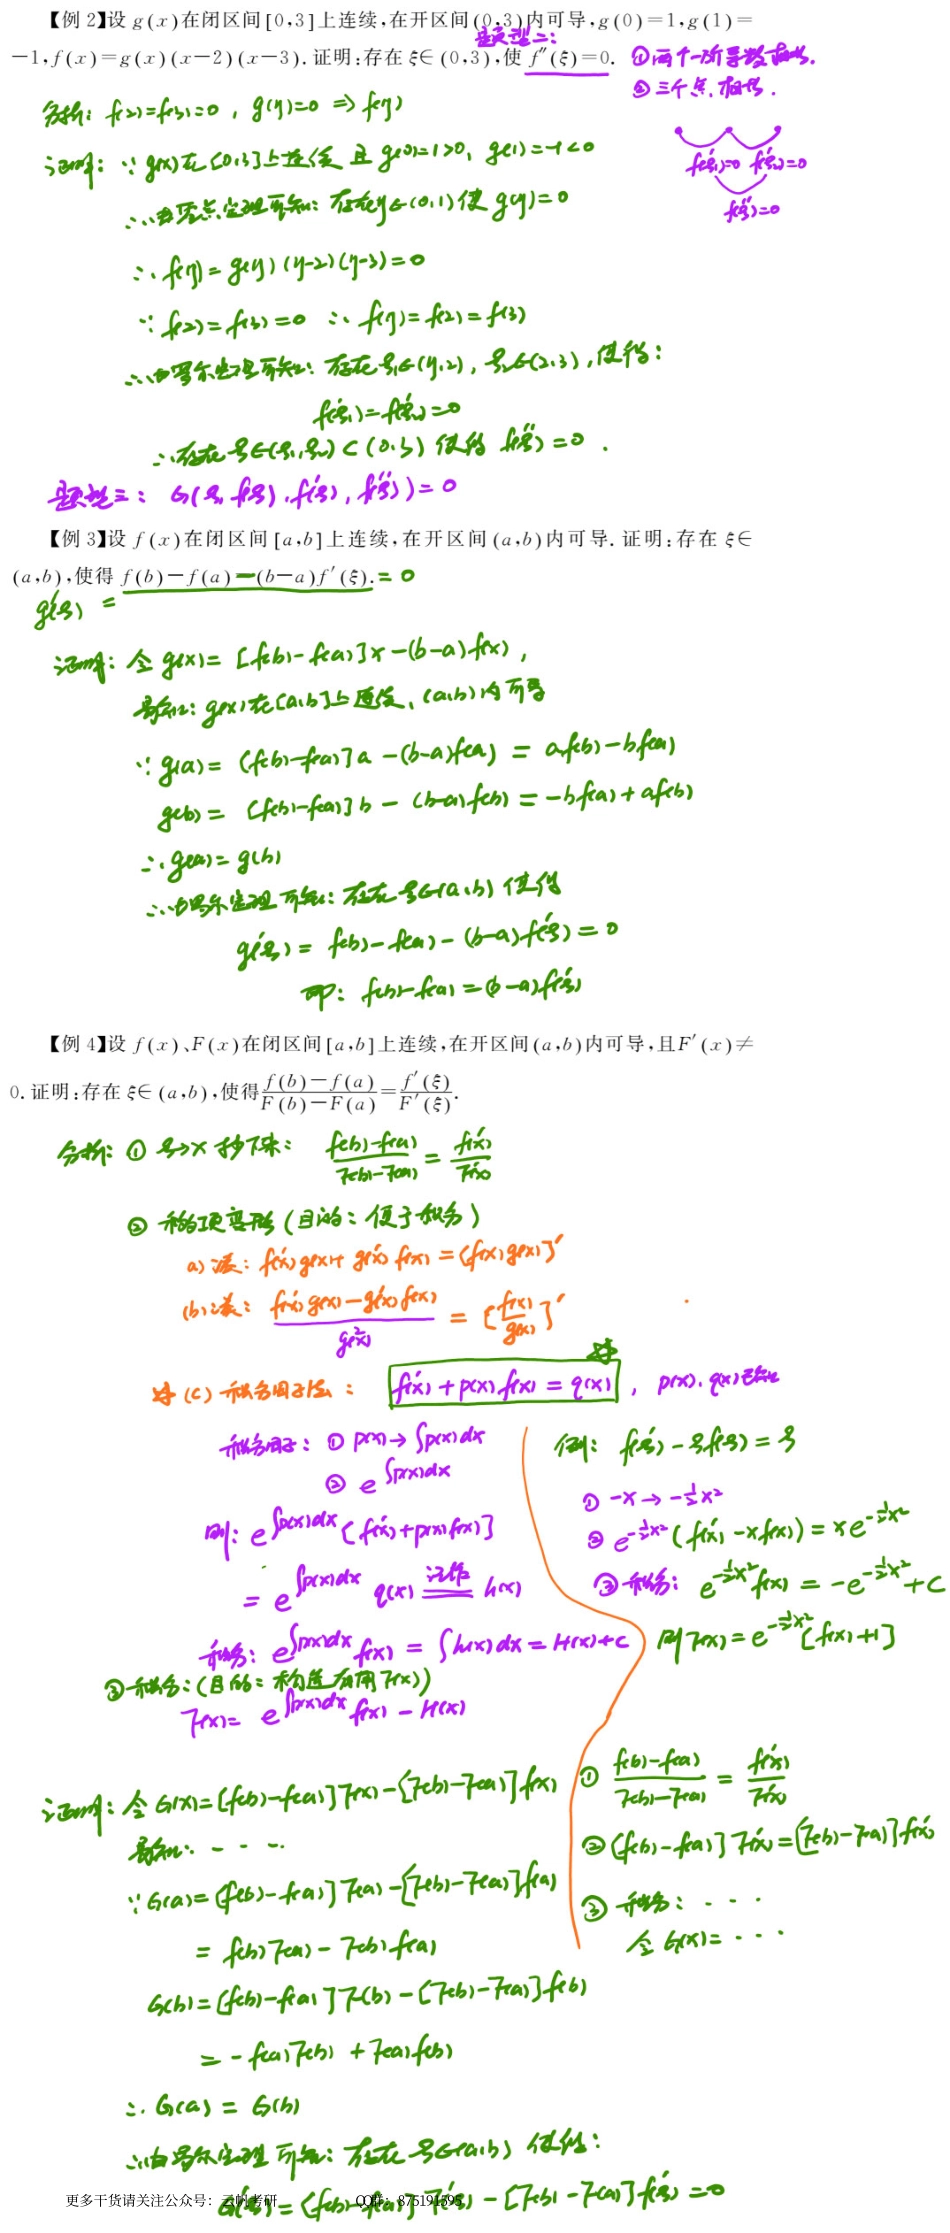 【例 2】设 g(x)在闭区间[0,3]上连续,在开区间(0,3)内可导,g(0)=1,g(1)=
-1,f(x)=g(x)(x-2)(x-3). 证明:存在 ξ∈(0,3),使 f″(ξ)=0.
题型二:
①两个一阶导数相等.
②三个点相等.
分析: f(2)=f(3)=0, g(η)=0 ⇒ f(η)
f′(ξ₁)=0 f′(ξ₂)=0
f″(ξ)=0
证明: ∵ g(x)在[0,3]上连续 且 g(0)=1>0, g(1)=-1<0
∴由零点定理可知: 存在η∈(0,1)使 g(η)=0
∴ f(η)=g(η)(η-2)(η-3)=0
∵ f(2)=f(3)=0 ∴ f(η)=f(2)=f(3)
∴由罗尔定理可知: 存在ξ₁∈(η,2), ξ₂∈(2,3), 使得:
f′(ξ₁)=f′(ξ₂)=0
∴存在ξ∈(ξ₁,ξ₂)⊂(0,3) 使得 f″(ξ)=0.
题型三: G(ξ, f(ξ), f′(ξ), f″(ξ))=0
【例 3】设 f(x)在闭区间[a,b]上连续,在开区间(a,b)内可导. 证明:存在 ξ∈
(a,b),使得 f(b)-f(a)=(b-a)f′(ξ). =0
g′(ξ) =
证明: 令 g(x)=[f(b)-f(a)]x-(b-a)f(x),
易知: g(x)在[a,b]上连续, (a,b)内可导
∵ g(a)=[f(b)-f(a)]a-(b-a)f(a) = af(b)-bf(a)
g(b)=[f(b)-f(a)]b-(b-a)f(b) = -bf(a)+af(b)
∴ g(a)=g(b)
∴由罗尔定理可知: 存在ξ∈(a,b)使得
g′(ξ)=f(b)-f(a)-(b-a)f′(ξ)=0
即: f(b)-f(a)=(b-a)f′(ξ)
【例 4】设 f(x)、F(x)在闭区间[a,b]上连续,在开区间(a,b)内可导,且F′(x)≠
0. 证明:存在 ξ∈(a,b),使得 (f(b)-f(a))/(F(b)-F(a)) = f′(ξ)/F′(ξ).
分析: ① ξ→x 抄下来: (f(b)-f(a))/(F(b)-F(a)) = f′(x)/F′(x)
② 移项变形(目的: 便于积分)
a) 凑: f′(x)g(x)+g′(x)f(x)=[f(x)g(x)]′
(b) 凑: (f′(x)g(x)-g′(x)f(x))/g²(x) = [f(x)/g(x)]′
(c) 积分因子法: f′(x)+p(x)f(x)=q(x), p(x), q(x)已知
积分因子: ① p(x)→∫p(x)dx
② e^∫p(x)dx
则: e^∫p(x)dx [f′(x)+p(x)f(x)]
= e^∫p(x)dx q(x) 记作 h(x)
积分: e^∫p(x)dx f(x) = ∫h(x)dx = H(x)+C
③积分: (目的: 构造有用F(x))
F(x)= e^∫p(x)dx f(x) - H(x)
例: f′(ξ)-ξf(ξ)=ξ
① -x→-½x²
② e^(-½x²)(f′(x)-xf(x))=xe^(-½x²)
③积分: e^(-½x²)f(x) = -e^(-½x²)+C
则F(x)=e^(-½x²)[f(x)+1]
① (f(b)-f(a))/(F(b)-F(a)) = f′(x)/F′(x)
② [f(b)-f(a)]F′(x)=[F(b)-F(a)]f′(x)
③ 积分: ····
令 G(x)=···
证明: 令 G(x)=[f(b)-f(a)]F(x)-[F(b)-F(a)]f(x)
易知: ····
∵ G(a)=[f(b)-f(a)]F(a)-[F(b)-F(a)]f(a)
= f(b)F(a)-F(b)f(a)
G(b)=[f(b)-f(a)]F(b)-[F(b)-F(a)]f(b)
= -f(a)F(b)+F(a)f(b)
∴ G(a)=G(b)
∴由罗尔定理可知: 存在ξ∈(a,b)使得:
G′(ξ)=[f(b)-f(a)]F′(ξ)-[F(b)-F(a)]f′(ξ)=0
更多干货请关注公众号：云帆考研 QQ群：875191595